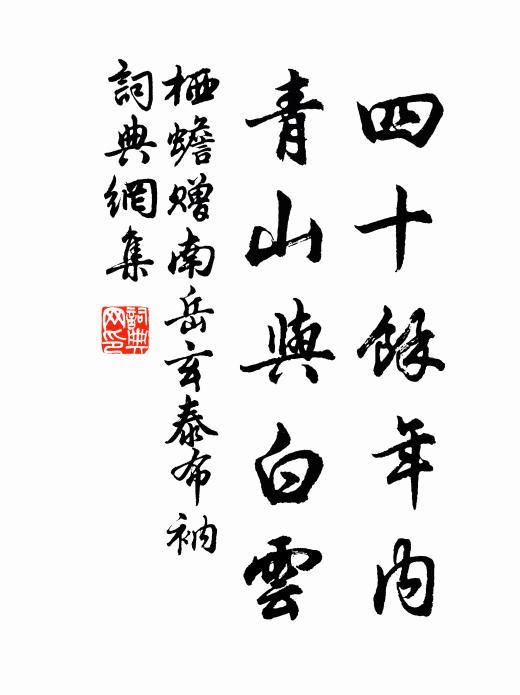 四十餘年內
青山與白雲
栖蟾贈南岳玄泰布衲
詞典網集
詞典
网印